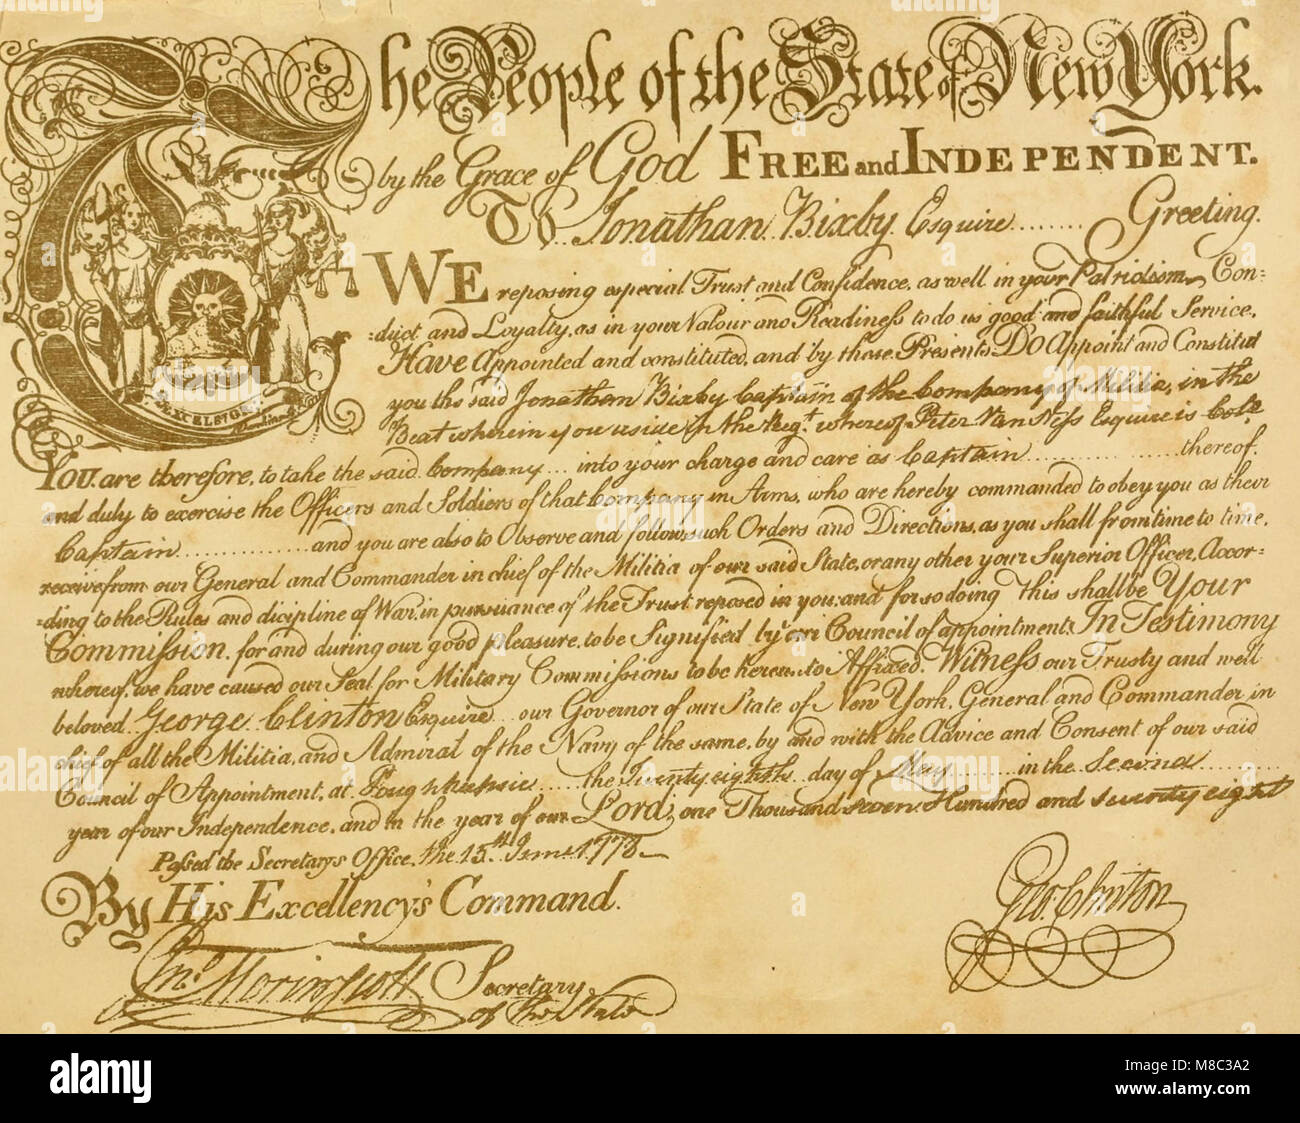 The People of the State of New York.
by the Grace of God FREE and INDEPENDENT.
To Jonathan Bixby Esquire ........ Greeting.
WE reposing especial Trust and Confidence, as well in your Patriotism, Con-
-duct and Loyalty, as in your Valour and Readiness to do us good and faithful Service,
Have Appointed and constituted, and by these Presents, Do Appoint and Constitut
you the said Jonathan Bixby Captain of the Company of Militia, in the
Beat wherein you reside in the Regt. whereof Peter Van Ness Esquire is Colo.
EXCELSIOR
You are therefore, to take the said Company ... into your charge and care as Captain ........................ thereof,
and duly to exercise the Officers and Soldiers of that Company in Arms, who are hereby commanded to obey you as their
Captain .................. and you are also to Observe and follow such Orders and Directions, as you shall from time to time,
receive from our General and Commander in chief of the Militia of our said State, or any other your Superior Officer, Accor-
-ding to the Rules and dicipline of War, in pursuance of the Trust reposed in you: and for so doing This shall be Your
Commission, for and during our good pleasure, to be Signified by our Council of appointment. In Testimony
whereof, we have caused our Seal for Military Commissions to be hereunto Affixed. Witness our Trusty and well
beloved George Clinton Esquire ... our Governor of our State of New York, General and Commander in
chief of all the Militia, and Admiral of the Navy of the same, by and with the Advice and Consent of our said
Council of Appointment, at Poughkepsie ..... the Twenty eighth day of May ......... in the Second .........
year of our Independence, and in the year of our Lord, one Thousand seven Hundred and seventy eight
Passed the Secretarys Office, the 15th June 1778
By His Excellency's Command.
Geo. Clinton
Jno. Morin Scott Secretary
of the State
alamy
alamy stock photo
M8C3A2
www.alamy.com